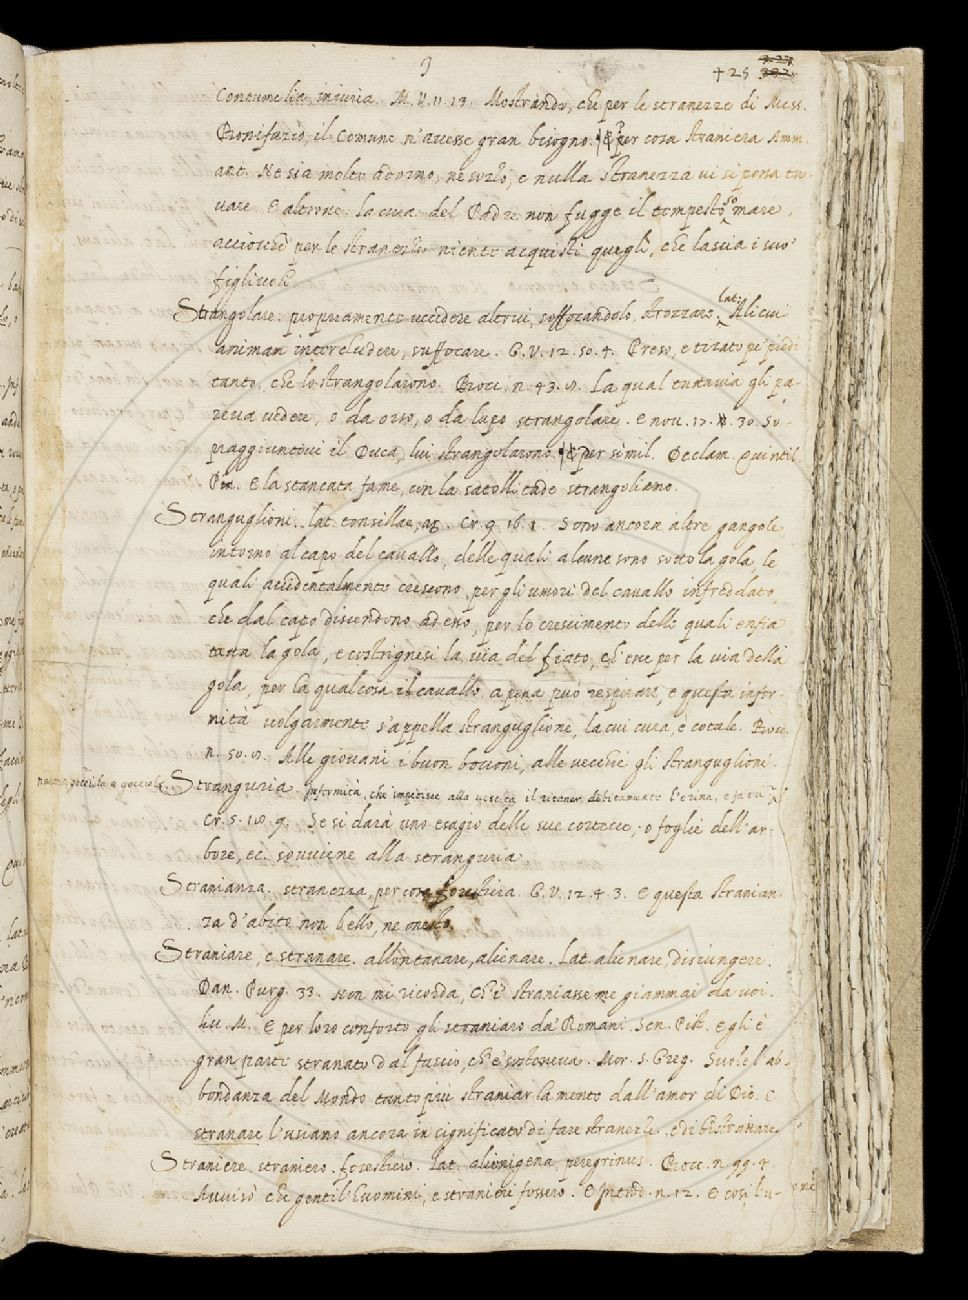 3
+25
Contumelia, iniuria. M. V. 11. 13. Mostrando, che per le stranezze di Mess.
Bonifazio, il Comune n'avesse gran bisogno. ¶ E per cosa straniera Amm.
ant. Ne sia molto adorno, ne sozzo, e nulla stranezza vi si possa tro-
vare. E altrove. la cura del Padre non fugge il tempestoso mare,
acciocchè per le stranezze niente acquisti quegli, che lascia i suo'
figliuoli.
Strangolare. propriamente uccidere altrui, soffocandolo, strozzare. Lat. Alicui
animam intercludere, suffocare. G. V. 12. 50. 4. Preso, e tirato pe' piedi
tanto, che lo strangolarono. Bocc. n. 43. 15. La qual tuttavia gli pa-
reva vedere, o da orso, o da lupo strangolare. E nov. 17. 30. So-
praggiuntovi il Duca, lui strangolarono. ¶ E per simil. Declam. Quintil.
P. E la stancata fame, con la satollitade strangoliamo.
Stranguglioni. lat. tonsillae, ar. Cr. 9. 16. 1. Sono ancora altre gangole
intorno al capo del cavallo, delle quali alcune sono sotto la gola, le
quali accidentalmente crescono, per gli umori del cavallo infreddato,
che dal capo discendono ad esso, per lo crescimento delle quali enfia
tutta la gola, e costrignesi la via del fiato, ch'esce per la via della
gola, per la qual cosa il cavallo a pena può respirare, e questa infer-
mità volgarmente s'appella stranguglione, la cui cura, è cotale. Bocc.
n. 50. 15. Alle giovani i buon bocconi, alle vecchie gli stranguglioni.
Stranguria. Infermità, che impedisce alla vescica il ritener debitamente l'orina, e fa
Cr. 5. 9. Se si darà uno esagio delle sue cortecce, o foglie dell'ar-
bore, ec. sovviene alla stranguria.
Stranianza. stranezza, per cosa forestiera. G. V. 12. 4. 3. E questa stranian-
za d'abito non bello, ne onesto.
Straniare, e stranare. allontanare, alienare. Lat. alienare, disiungere.
Dan. Purg. 33. Non mi ricorda, Ch'i' straniasse me giammai da voi.
liv. M. E per loro conforto gli straniaro da' Romani. Sen. Pist. Egli è
gran parte stranato dal fascio, ch'e' sosteneva. Mor. S. Greg. Suole l'ab-
bondanza del Mondo tanto più straniar la mente dall'amor di Dio. E
stranare l'usiamo ancora in significato di fare stranezze, e di bistrattare
Straniere, straniero. forestiero. Lat. alienigena, peregrinus. Bocc. n. 99. 4.
Avvisò che gentil'huomini, e stranieri fossero. E Introd. n. 12. E così l'u-